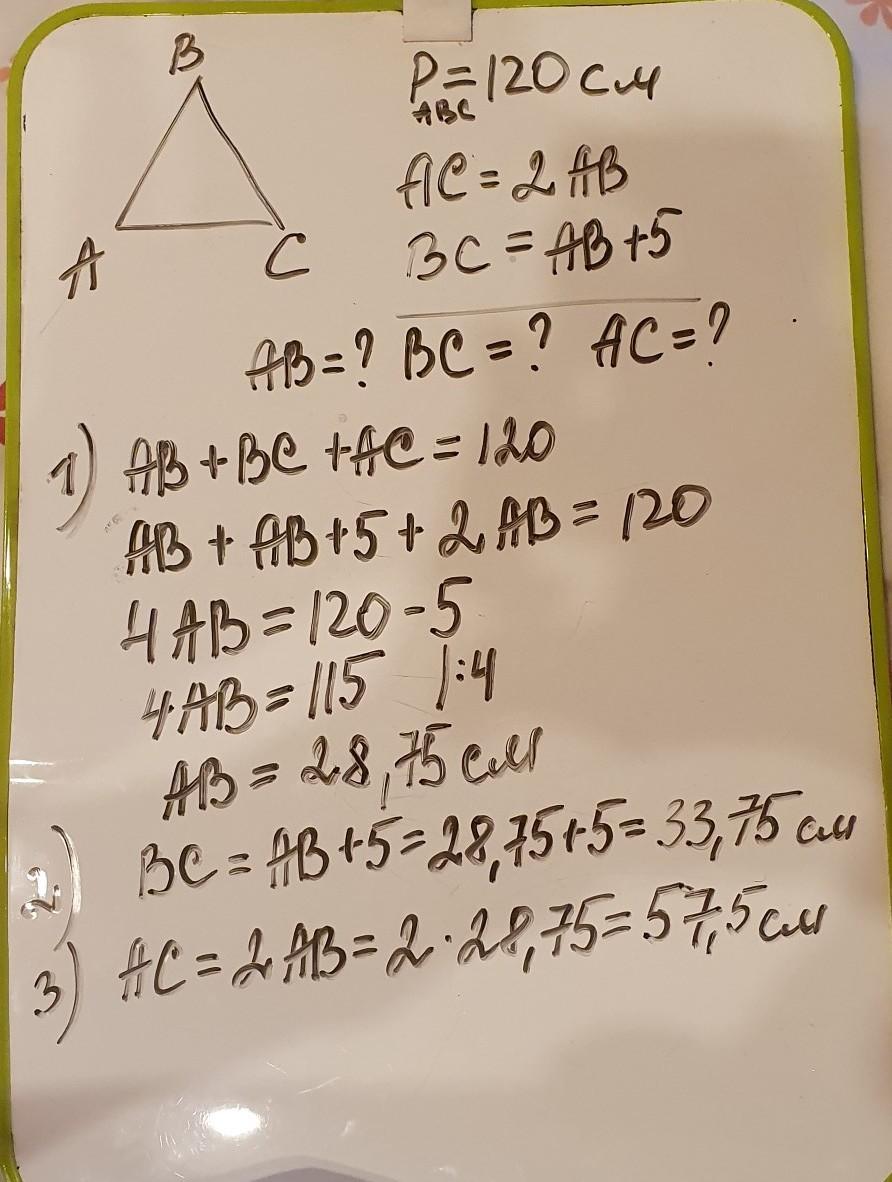 B
A
C
P = 120 см
ABC
AC = 2 AB
BC = AB+5
AB=? BC=? AC=?
1) AB + BC + AC = 120
AB + AB+5 + 2 AB = 120
4 AB = 120 - 5
4 AB = 115 |:4
AB = 28,75 см
2) BC = AB+5 = 28,75+5 = 33,75 см
3) AC = 2 AB = 2 · 28,75 = 57,5 см